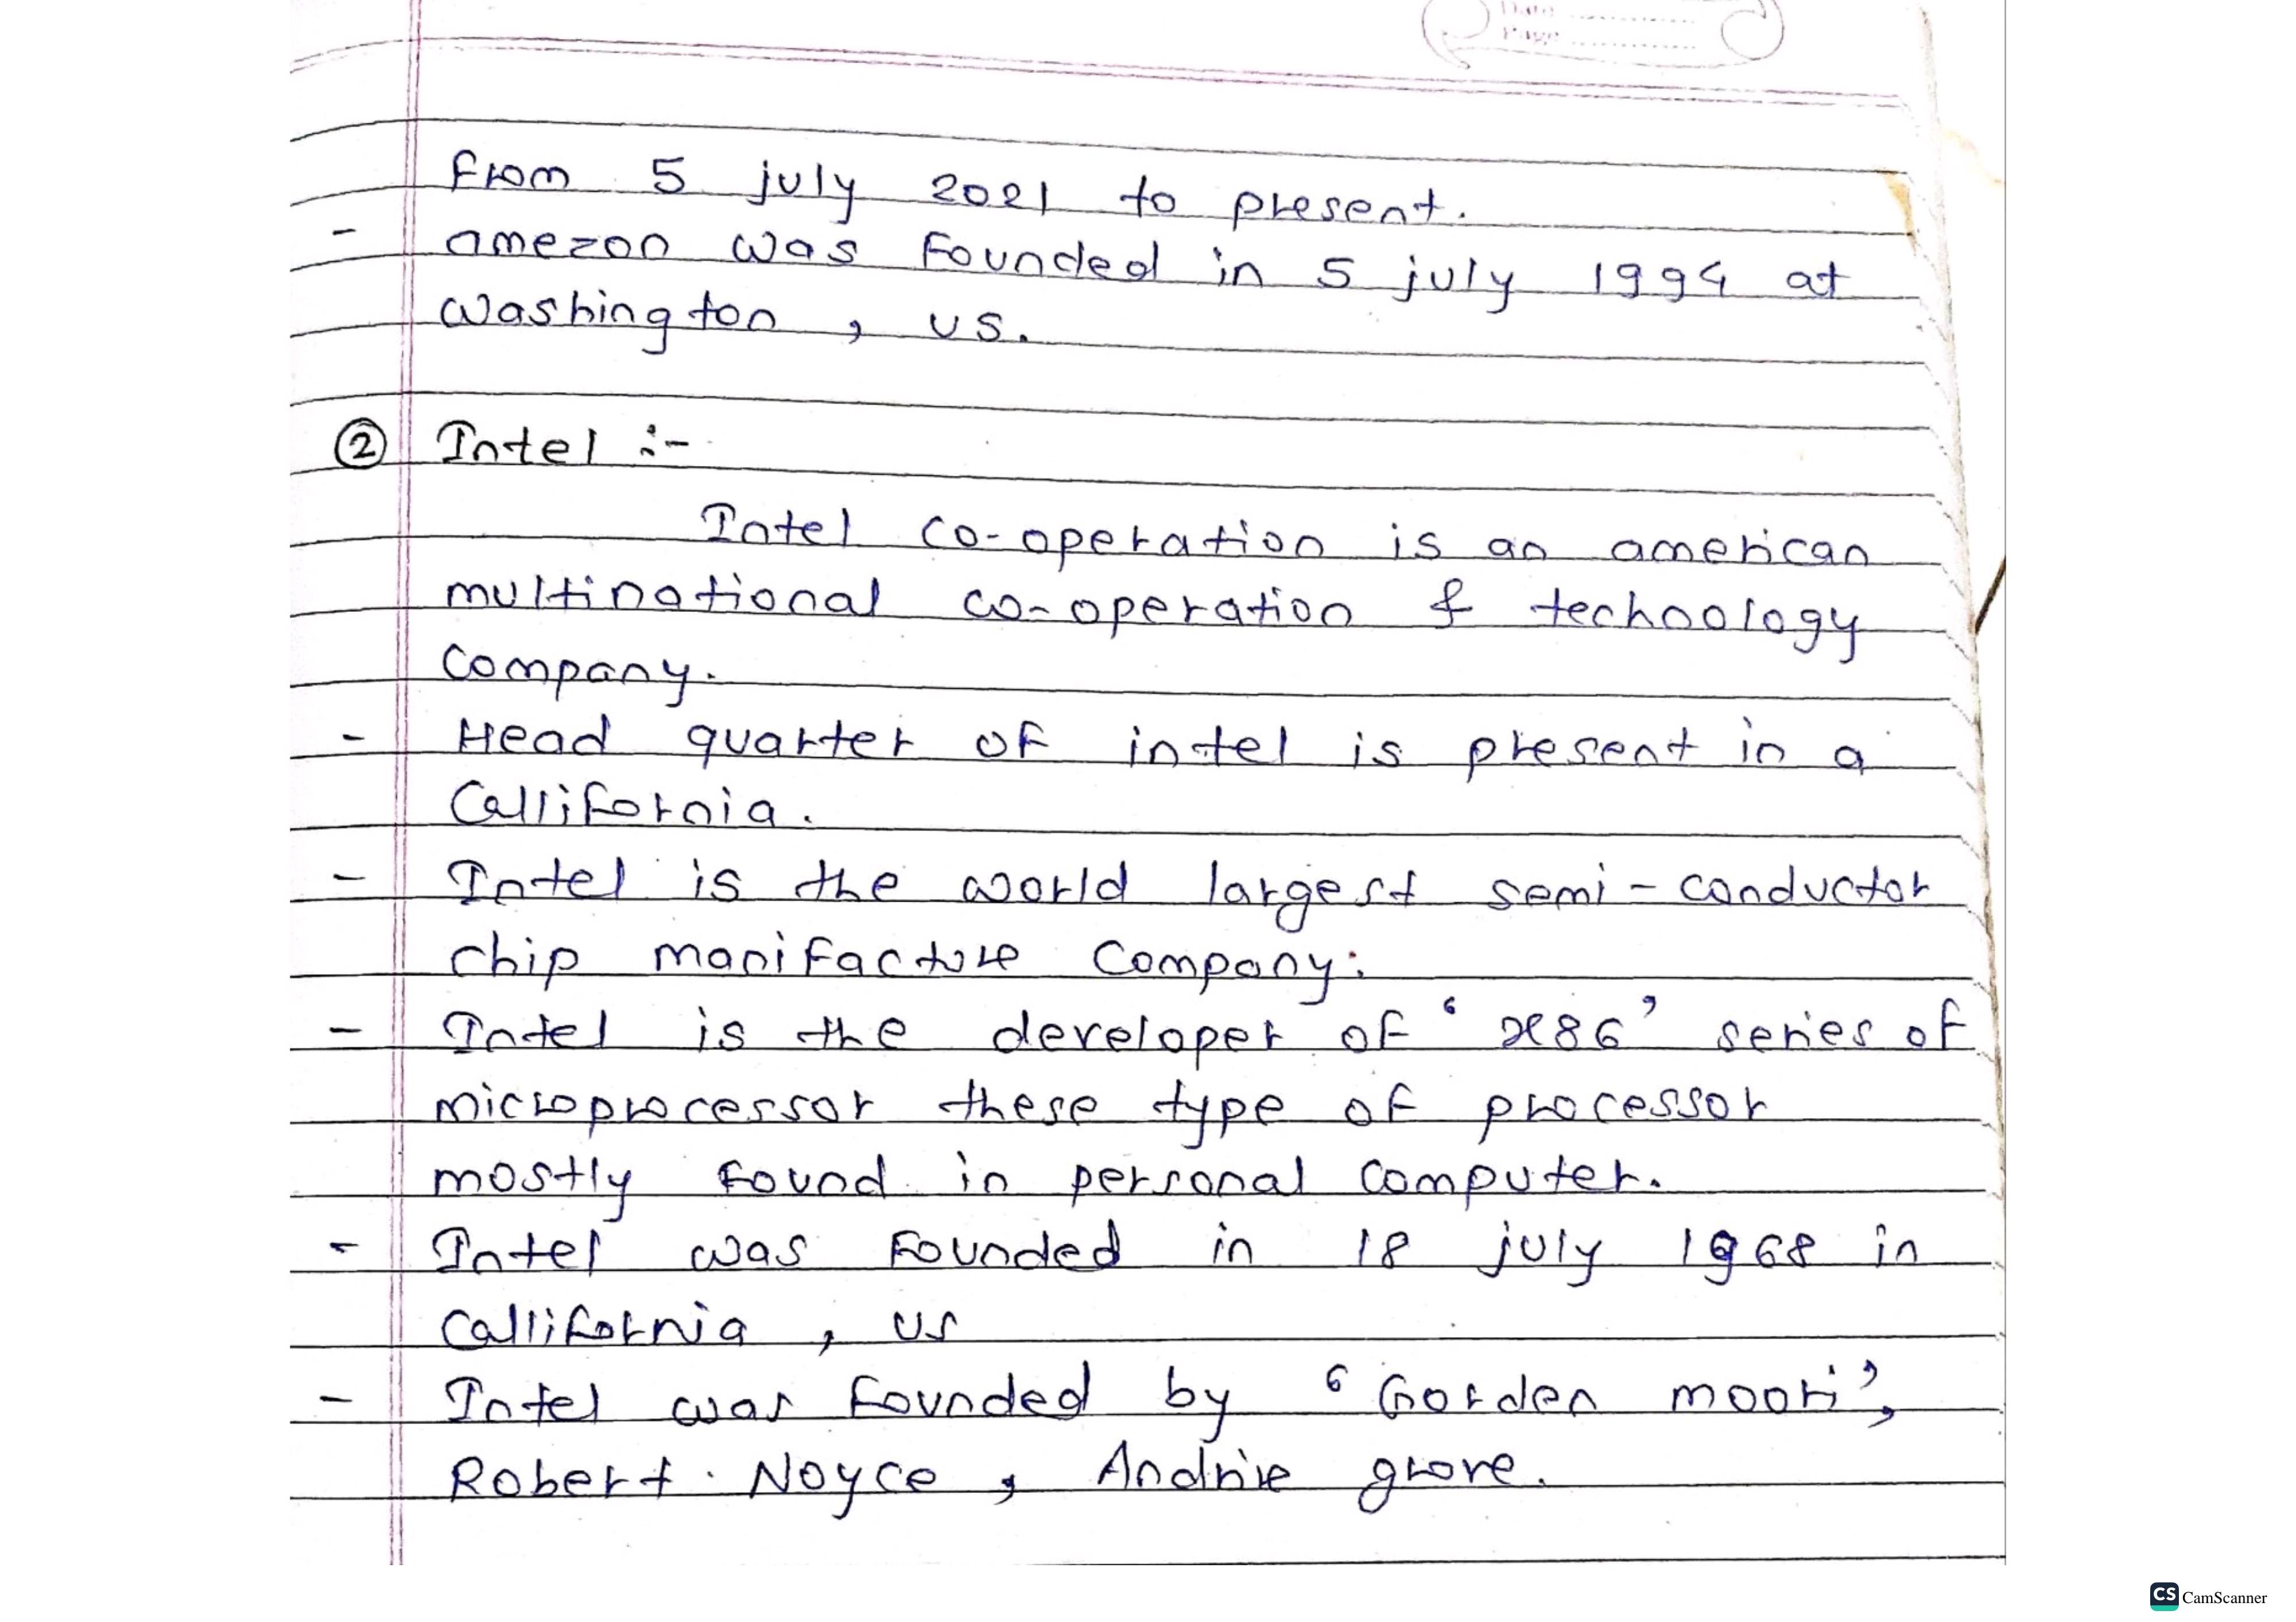 Date
Page
From 5 july 2021 to present.
- amezon was founded in 5 july 1994 at
washington, US.
② Intel :-
Intel co-operation is an american
multinational co-operation & technology
company.
- Head quarter of intel is present in a
Callifornia.
- Intel is the world largest semi-conductor
chip manifacture company.
- Intel is the developer of 'x86' series of
microprocessor these type of processor
mostly found in personal computer.
- Intel was founded in 18 july 1968 in
Callifornia, US
- Intel was founded by 'Gorden moori',
Robert Noyce, Andrie grove.
CS CamScanner